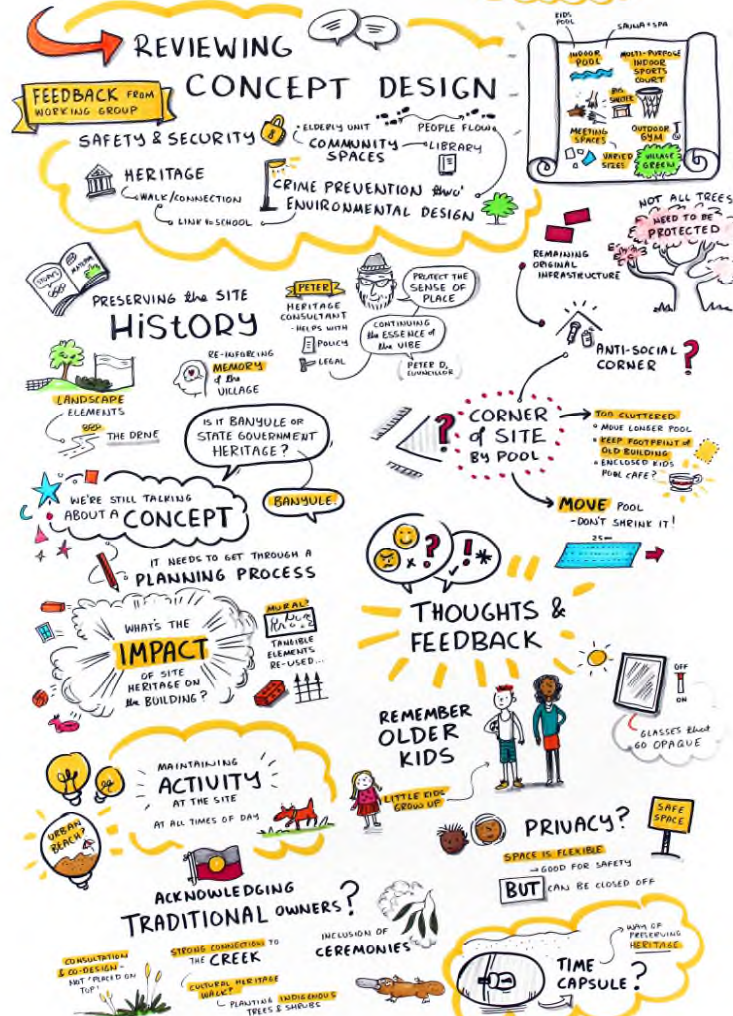 REVIEWING
CONCEPT DESIGN
FEEDBACK FROM
WORKING GROUP
SAFETY & SECURITY
ELDERLY UNIT
PEOPLE FLOW
COMMUNITY
SPACES
LIBRARY
HERITAGE
WALK/CONNECTION
LINK to SCHOOL
CRIME PREVENTION thru'
ENVIRONMENTAL DESIGN
KIDS
POOL
SAUNA + SPA
INDOOR
POOL
MULTI-PURPOSE
INDOOR
SPORTS
COURT
BUS
SHELTER
MEETING
SPACES
VARIED
SIZES
OUTDOOR
GYM
VILLAGE
GREEN
NOT ALL TREES
NEED TO BE
PROTECTED
REMAINING
ORIGINAL
INFRASTRUCTURE
ANTI-SOCIAL
CORNER
?
PRESERVING the SITE
HISTORY
PETER
HERITAGE
CONSULTANT
- HELPS WITH
POLICY
LEGAL
PROTECT THE
SENSE OF
PLACE
CONTINUING
the ESSENCE of
the VIBE
PETER D,
COUNCILLOR
LANDSCAPE
ELEMENTS
THE DRNE
RE-INFORCING
MEMORY
of the
VILLAGE
IS IT BANYULE OR
STATE GOVERNMENT
HERITAGE?
BANYULE.
?
CORNER
of SITE
BY POOL
TOO CLUTTERED
MOVE LONGER POOL
KEEP FOOTPRINT of
OLD BUILDING
ENCLOSED KIDS
POOL CAFE?
MOVE POOL
- DON'T SHRINK IT!
25m
WE'RE STILL TALKING
ABOUT A CONCEPT
IT NEEDS TO GET THROUGH A
PLANNING PROCESS
WHAT'S THE
IMPACT
OF SITE
HERITAGE ON
the BUILDING?
MURAL?
TANGIBLE
ELEMENTS
RE-USED...
THOUGHTS &
FEEDBACK
REMEMBER
OLDER
KIDS
LITTLE KIDS
GROW UP
OFF
ON
GLASSES that
GO OPAQUE
MAINTAINING
ACTIVITY
AT THE SITE
AT ALL TIMES OF DAY
URBAN
BEACH?
PRIVACY?
SAFE
SPACE
SPACE IS FLEXIBLE
GOOD FOR SAFETY
BUT CAN BE CLOSED OFF
ACKNOWLEDGING
TRADITIONAL OWNERS?
CONSULTATION
& CO-DESIGN -
NOT "PLACED ON
TOP"
STRONG CONNECTION TO
THE CREEK
CULTURAL HERITAGE
WALK?
PLANTING INDIGENOUS
TREES & SHRUBS
INCLUSION OF
CEREMONIES
TIME
CAPSULE?
WAY OF
PRESERVING
HERITAGE